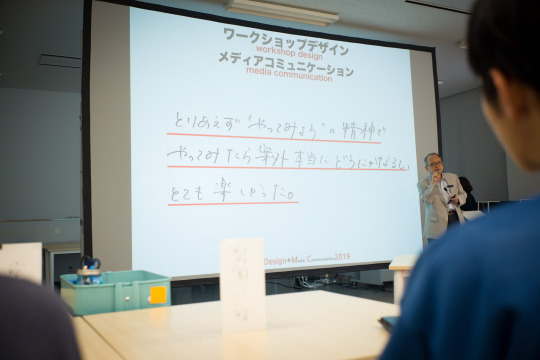 ワークショップデザイン
workshop design
メディアコミュニケーション
media communication
とりあえず"やってみよう"の精神で
やってみたら案外本当にどうにかなるし、
とても楽しかった。
Design+Media Communication2019